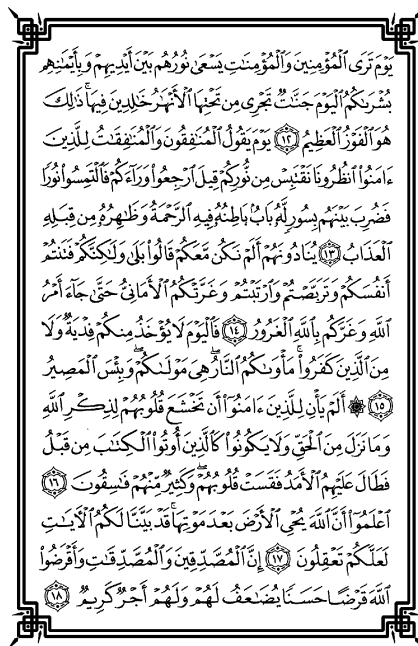 يَوْمَ تَرَى الْمُؤْمِنِينَ وَالْمُؤْمِنَٰتِ يَسْعَىٰ نُورُهُم بَيْنَ أَيْدِيهِمْ وَبِأَيْمَٰنِهِم
بُشْرَىٰكُمُ الْيَوْمَ جَنَّٰتٌ تَجْرِى مِن تَحْتِهَا الْأَنْهَٰرُ خَٰلِدِينَ فِيهَا ۚ ذَٰلِكَ
هُوَ الْفَوْزُ الْعَظِيمُ ۝١٢ يَوْمَ يَقُولُ الْمُنَٰفِقُونَ وَالْمُنَٰفِقَٰتُ لِلَّذِينَ
ءَامَنُوا۟ انظُرُونَا نَقْتَبِسْ مِن نُّورِكُمْ قِيلَ ارْجِعُوا۟ وَرَآءَكُمْ فَالْتَمِسُوا۟ نُورًا
فَضُرِبَ بَيْنَهُم بِسُورٍ لَّهُۥ بَابٌۢ بَاطِنُهُۥ فِيهِ الرَّحْمَةُ وَظَٰهِرُهُۥ مِن قِبَلِهِ
الْعَذَابُ ۝١٣ يُنَادُونَهُمْ أَلَمْ نَكُن مَّعَكُمْ ۖ قَالُوا۟ بَلَىٰ وَلَٰكِنَّكُمْ فَتَنتُمْ
أَنفُسَكُمْ وَتَرَبَّصْتُمْ وَارْتَبْتُمْ وَغَرَّتْكُمُ الْأَمَانِىُّ حَتَّىٰ جَآءَ أَمْرُ
اللَّهِ وَغَرَّكُم بِاللَّهِ الْغَرُورُ ۝١٤ فَالْيَوْمَ لَا يُؤْخَذُ مِنكُمْ فِدْيَةٌ وَلَا
مِنَ الَّذِينَ كَفَرُوا۟ ۚ مَأْوَىٰكُمُ النَّارُ ۖ هِىَ مَوْلَىٰكُمْ ۖ وَبِئْسَ الْمَصِيرُ
۝١٥ ۞ أَلَمْ يَأْنِ لِلَّذِينَ ءَامَنُوٓا۟ أَن تَخْشَعَ قُلُوبُهُمْ لِذِكْرِ اللَّهِ
وَمَا نَزَلَ مِنَ الْحَقِّ وَلَا يَكُونُوا۟ كَالَّذِينَ أُوتُوا۟ الْكِتَٰبَ مِن قَبْلُ
فَطَالَ عَلَيْهِمُ الْأَمَدُ فَقَسَتْ قُلُوبُهُمْ ۖ وَكَثِيرٌ مِّنْهُمْ فَٰسِقُونَ ۝١٦
اعْلَمُوٓا۟ أَنَّ اللَّهَ يُحْىِ الْأَرْضَ بَعْدَ مَوْتِهَا ۚ قَدْ بَيَّنَّا لَكُمُ الْءَايَٰتِ
لَعَلَّكُمْ تَعْقِلُونَ ۝١٧ إِنَّ الْمُصَّدِّقِينَ وَالْمُصَّدِّقَٰتِ وَأَقْرَضُوا۟
اللَّهَ قَرْضًا حَسَنًا يُضَٰعَفُ لَهُمْ وَلَهُمْ أَجْرٌ كَرِيمٌ ۝١٨